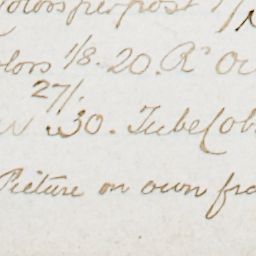 colors per post
olors 1/8. 20. R
27/.
30. Tube Col
Picture on own fra